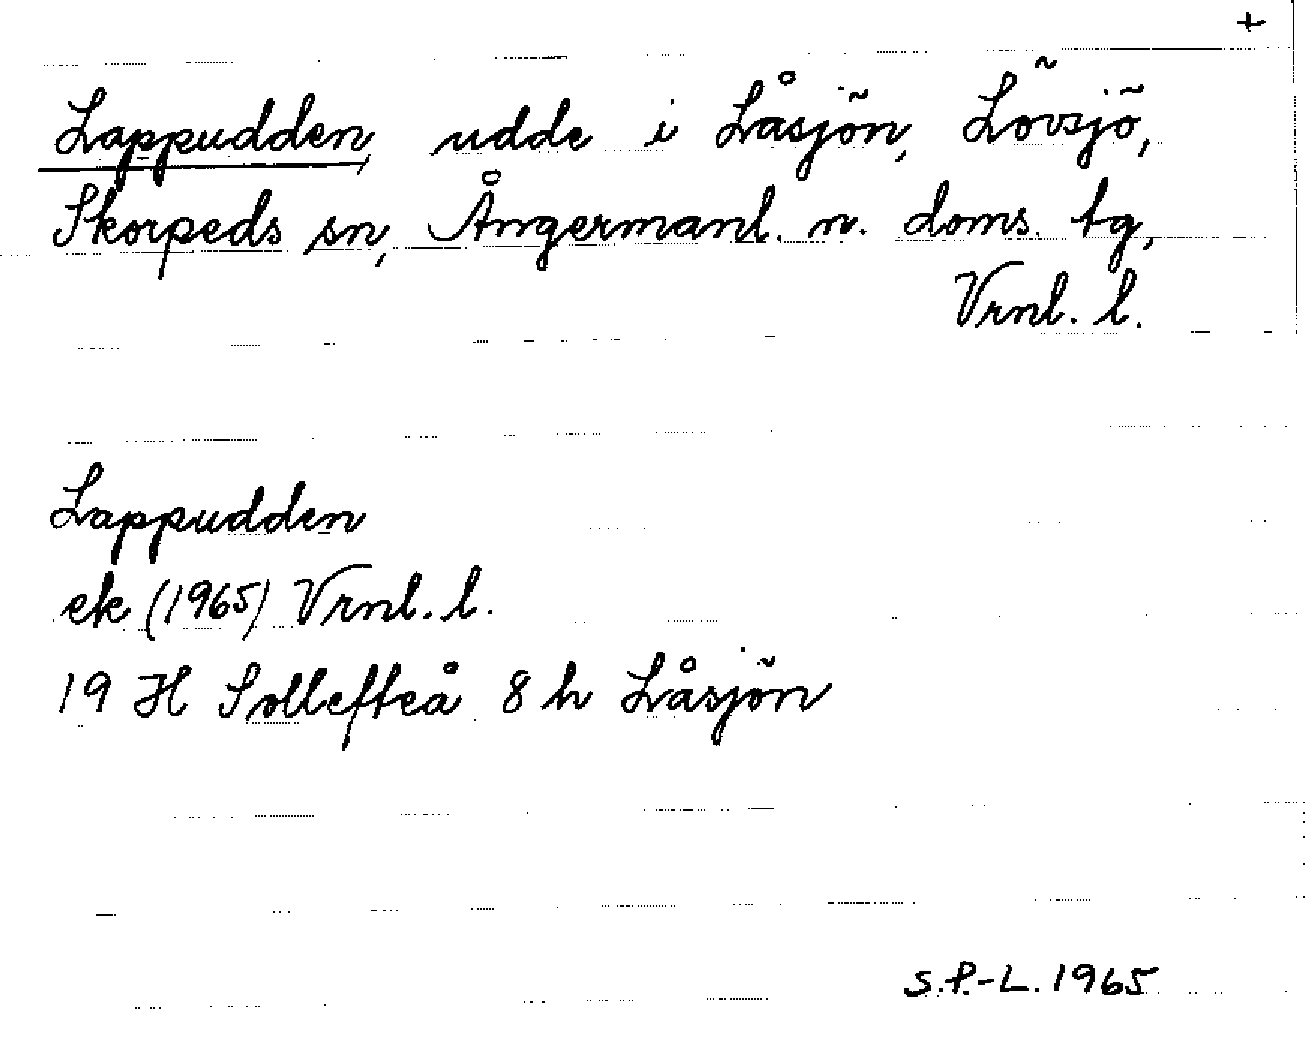 +
Lappudden, udde i Låsjön, Lövsjö,
Skorpeds sn, Ångermanl. n. doms. tg,
Vrnl. l.
Lappudden
ek (1965) Vrnl. l.
19 H Sollefteå 8 h Låsjön
S.P.-L. 1965